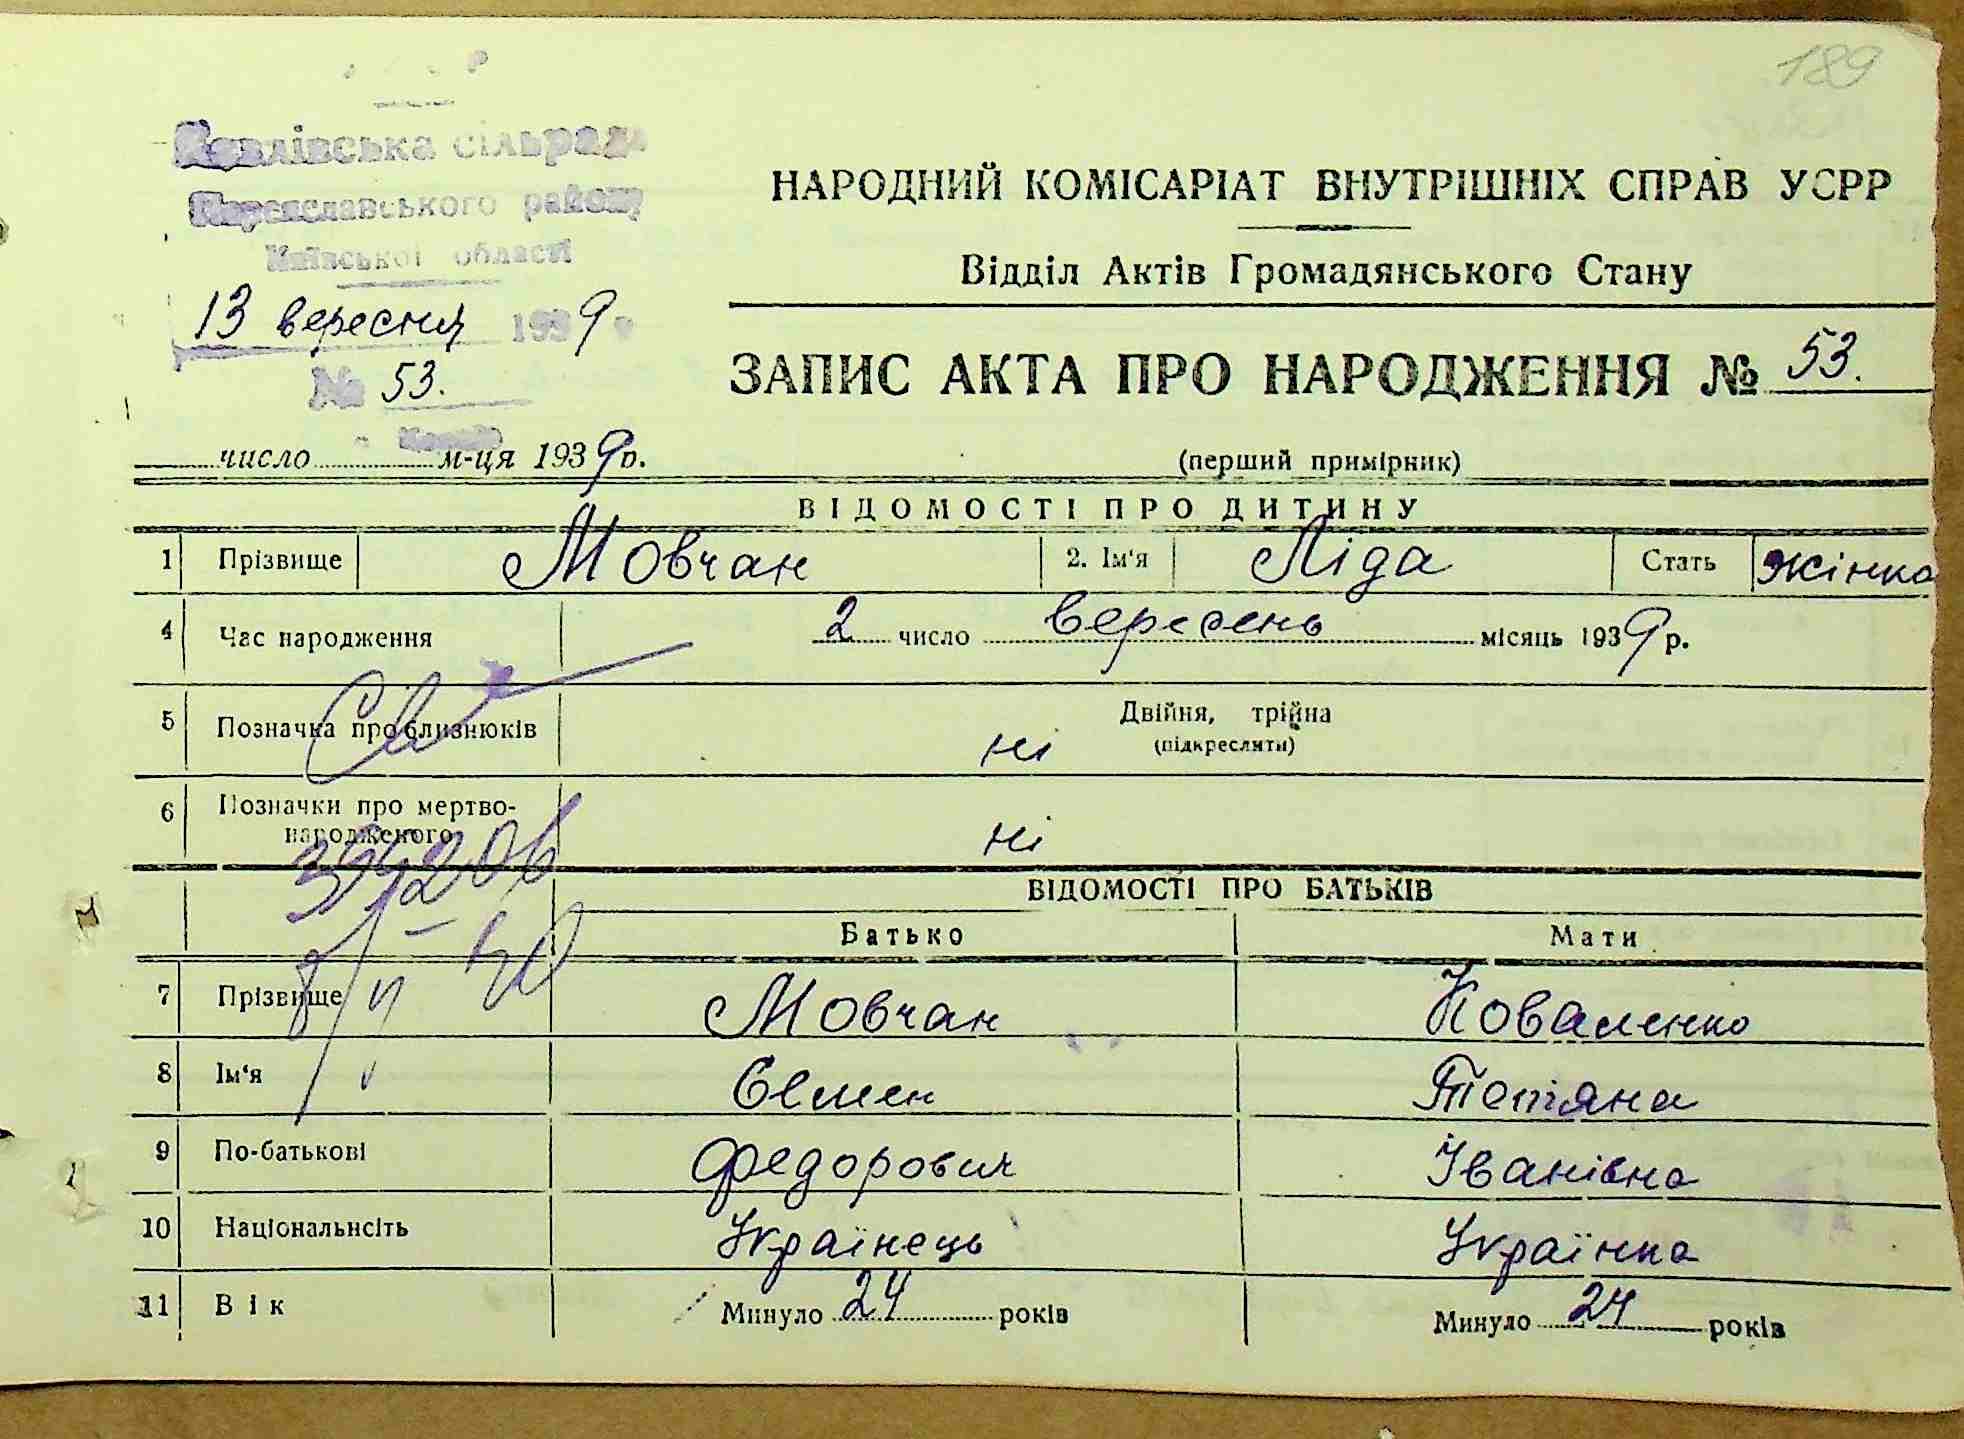 189
Ковлівська сільрада
Переяславського району
Київської області
13 вересня 1939 р
№ 53.
НАРОДНИЙ КОМІСАРІАТ ВНУТРІШНІХ СПРАВ УСРР
Відділ Актів Громадянського Стану
ЗАПИС АКТА ПРО НАРОДЖЕННЯ № 53.
число м-ця 1939 р.
(перший примірник)
ВІДОМОСТІ ПРО ДИТИНУ
1 Прізвище Мовчан 2. Ім'я Ліда Стать жінка
4 Час народження 2 число вересень місяць 1939 р.
5 Позначка про близнюків ні Двійня, трійна
(підкреслити)
6 Позначки про мертво-
народженого ні
ВІДОМОСТІ ПРО БАТЬКІВ
Батько Мати
7 Прізвище Мовчан Коваленко
8 Ім'я Семен Тетяна
9 По-батькові Федорович Іванівна
10 Національнсіть Українець Українка
11 Вік Минуло 24 років Минуло 24 років